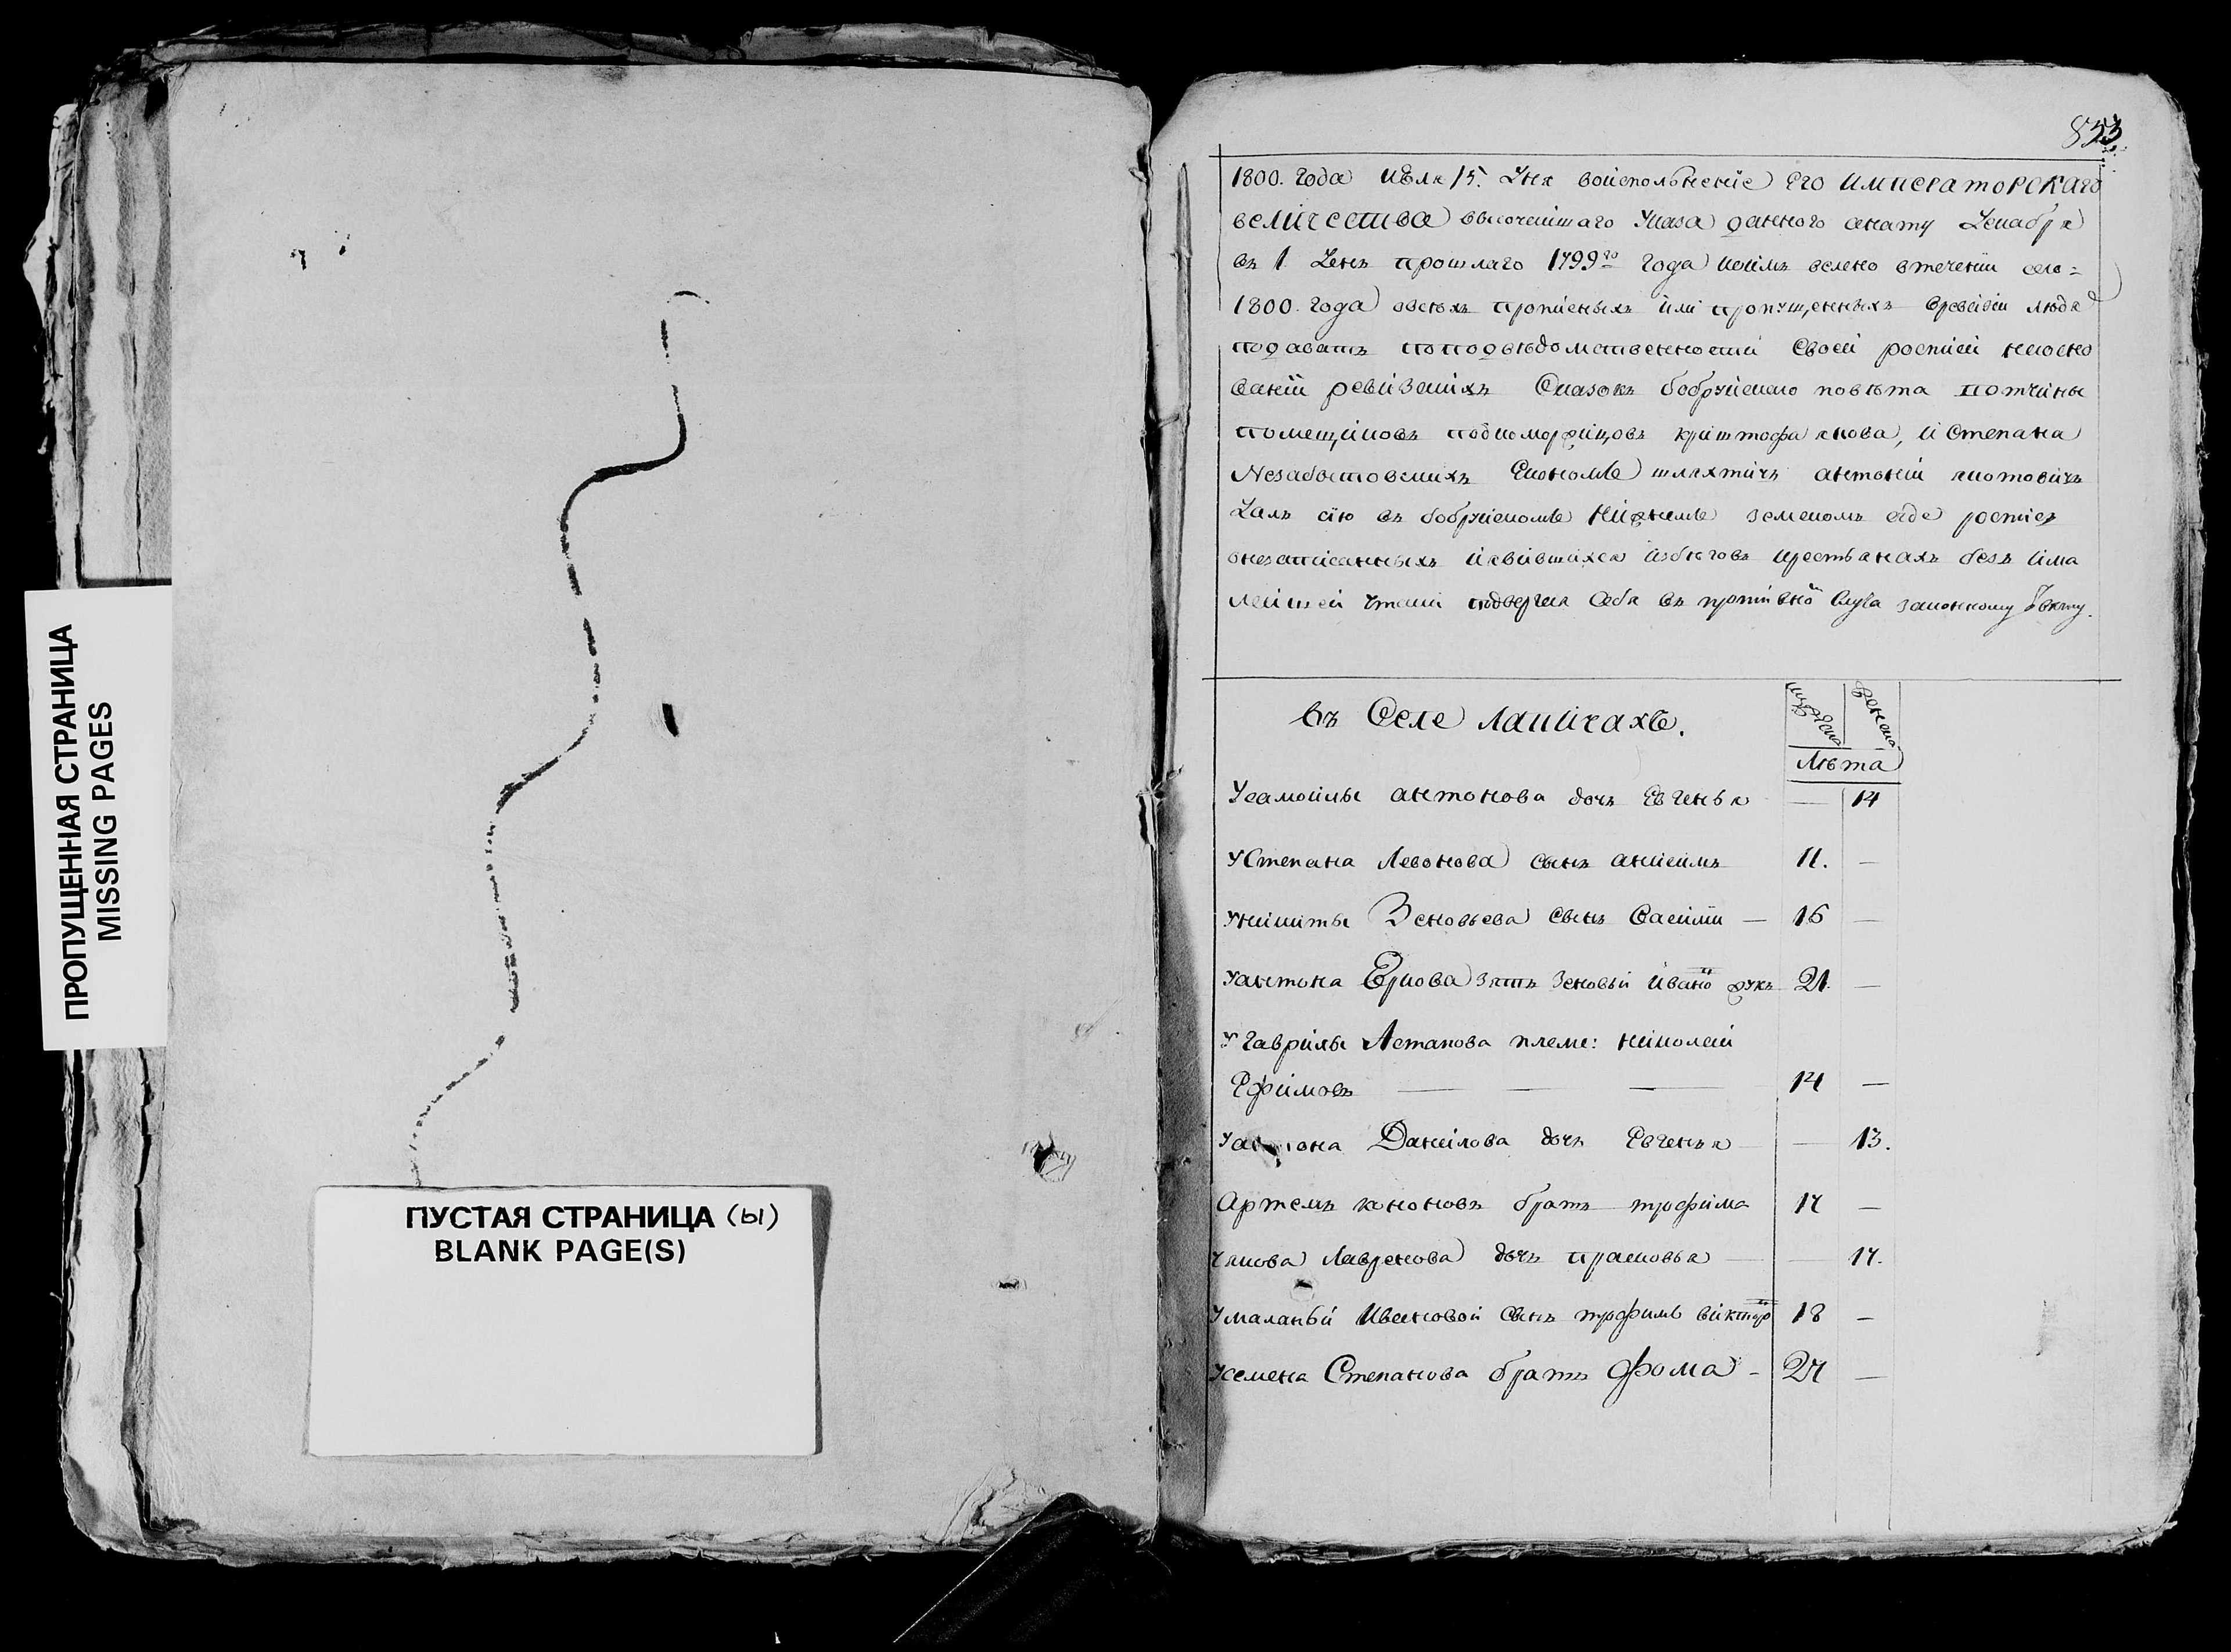 ПРОПУЩЕННАЯ СТРАНИЦА
MISSING PAGES
ПУСТАЯ СТРАНИЦА (ы)
BLANK PAGE(S)
853
1800. года июля 15. дня воисполнение Его ИМПЕРАТОРСКАГО
величества высочеишаго указа данного сенату декабря
въ 1 день прошлаго 1799го года коимъ велено втечении сего
1800. года овсехъ прописныхъ или пропущенныхъ вревизии людя
подавать поподведомственности своей росписи наосно
вании ревизскихъ сказокъ бобруйскаго повета вотчины
помещиковъ криштофа якова, и степана
Незабытовскихъ економъ шляхтичъ антоний
далъ сию въ бобруйскомъ нижнемъ земскомъ суде роспись
онезаписанныхъ иявившихся избеговъ крестьянахъ безъ ма
лейшей утайки подвергая себя въ противно законному
въ Селе Лапичахъ.
мужеска женска
лета
Усамойлы антонова дочь Евгенья — 14
Устепана Левонова сынъ 11. —
Уникиты Зеновьева сынъ Василий — 16 —
Уантона зять Зеновий Ивано 21. —
Угаврилы Астапова племе: николай
Ефимовъ — — — 14 —
Данилова дочь Евгенья — 13.
Артемъ кононовъ братъ трофима 17 —
Уякова Лавренова дочь прасковья — 17.
Умаланьи Ивановой сынъ трофимъ виктор 18 —
Усемена Степанова братъ Фома - 27 —